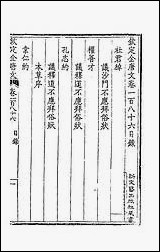 欽定全唐文卷一百八十六目錄
杜君綽
議沙門不應拜俗狀
權善才
議釋道不應拜俗狀
孔志約
議釋道不應拜俗狀
本草序
韋仁約
欽定全唐文
卷一百八十六
目錄